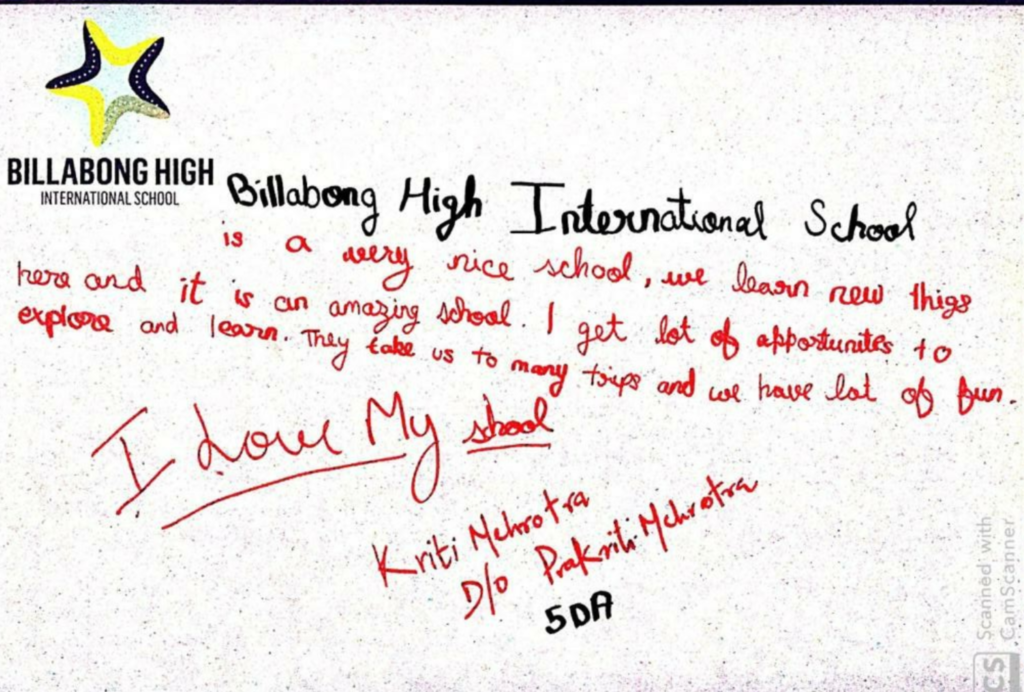 BILLABONG HIGH
INTERNATIONAL SCHOOL
Billabong High International School
is a very nice school, we learn new thigs
here and it is an amazing school. I get lot of apportunites to
explore and learn. They take us to many trips and we have lot of fun.
I Love My school
Kriti Mehrotra
D/o Prakriti Mehrotra
5DA
CS Scanned with
CamScanner